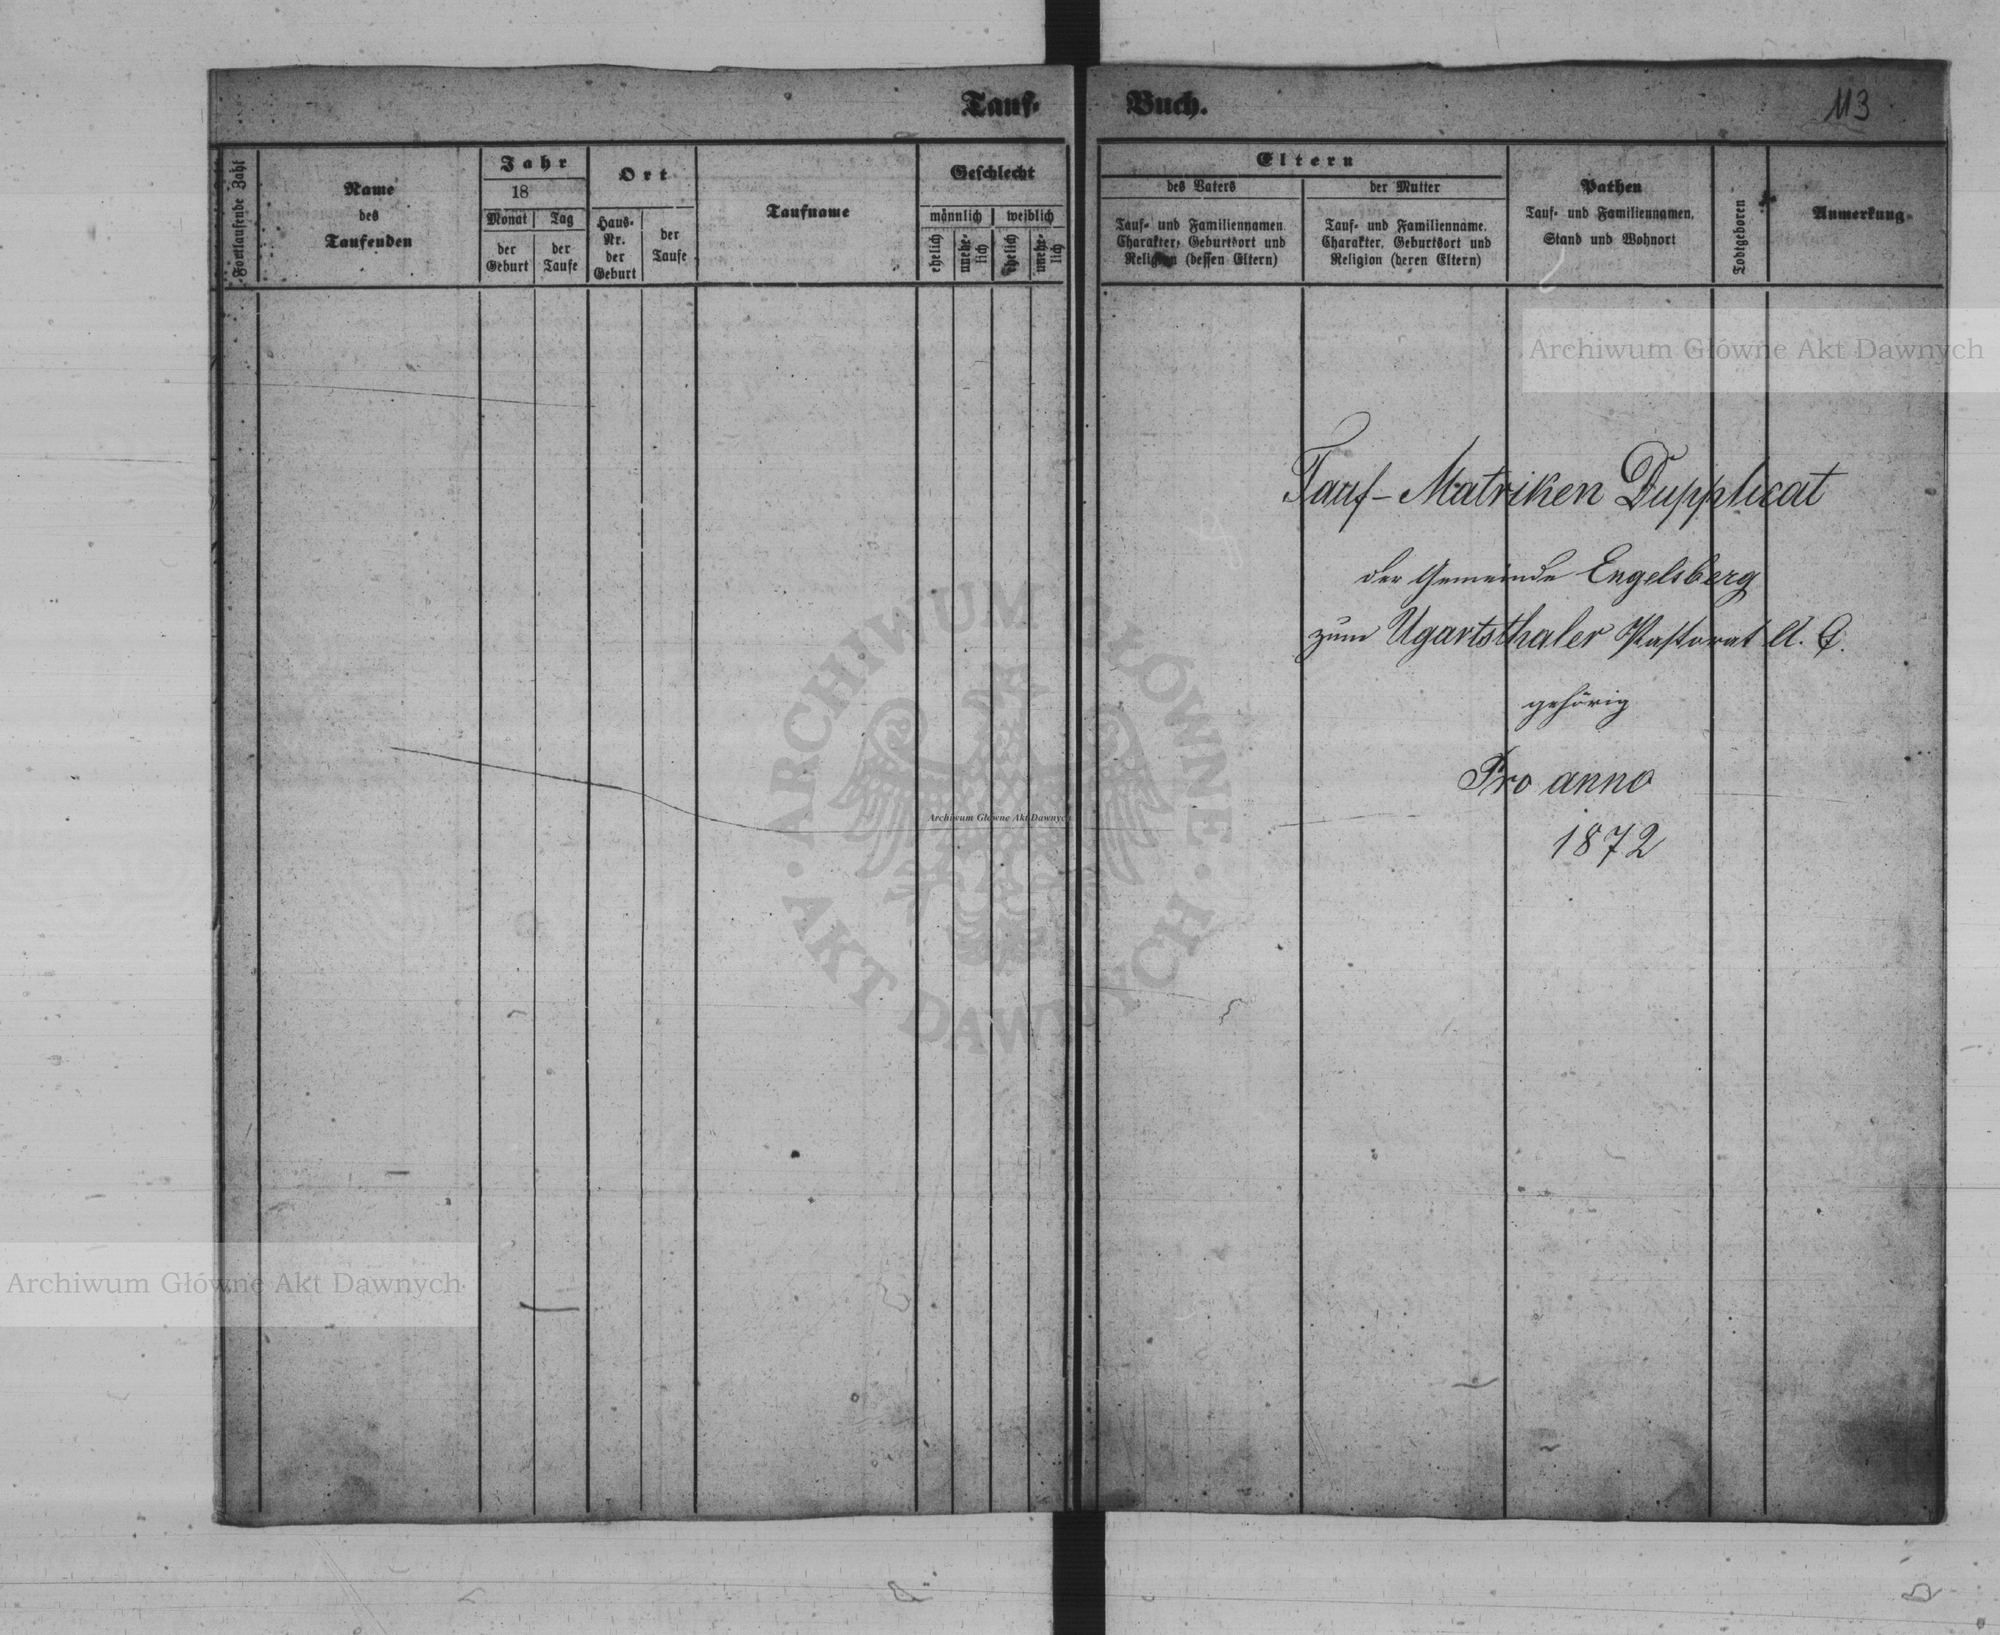 Tauf-
Buch.
113
Fortlaufende Zahl
Name
des
Taufenden
Jahr
18
Monat
der
Geburt
Tag
der
Taufe
Ort
Haus-
Nr.
der
Geburt
der
Taufe
Taufname
Geschlecht
männlich
weiblich
ehelich
unehe-
lich
ehelich
unehe-
lich
Eltern
des Vaters
Tauf- und Familiennamen
Charakter, Geburtsort und
Religion (dessen Eltern)
der Mutter
Tauf- und Familienname.
Charakter, Geburtsort und
Religion (deren Eltern)
Pathen
Tauf- und Familiennamen,
Stand und Wohnort
Todtgeboren
Anmerkung
Archiwum Główne Akt Dawnych
Tauf-Matriken Dupplicat
der Gemeinde Engelsberg
zum Ugartsthaler Pastorat A. C.
gehörig
Pro anno
1872
ARCHIWUM GŁÓWNE
AKT DAWNYCH
Archiwum Główne Akt Dawnych
Archiwum Główne Akt Dawnych